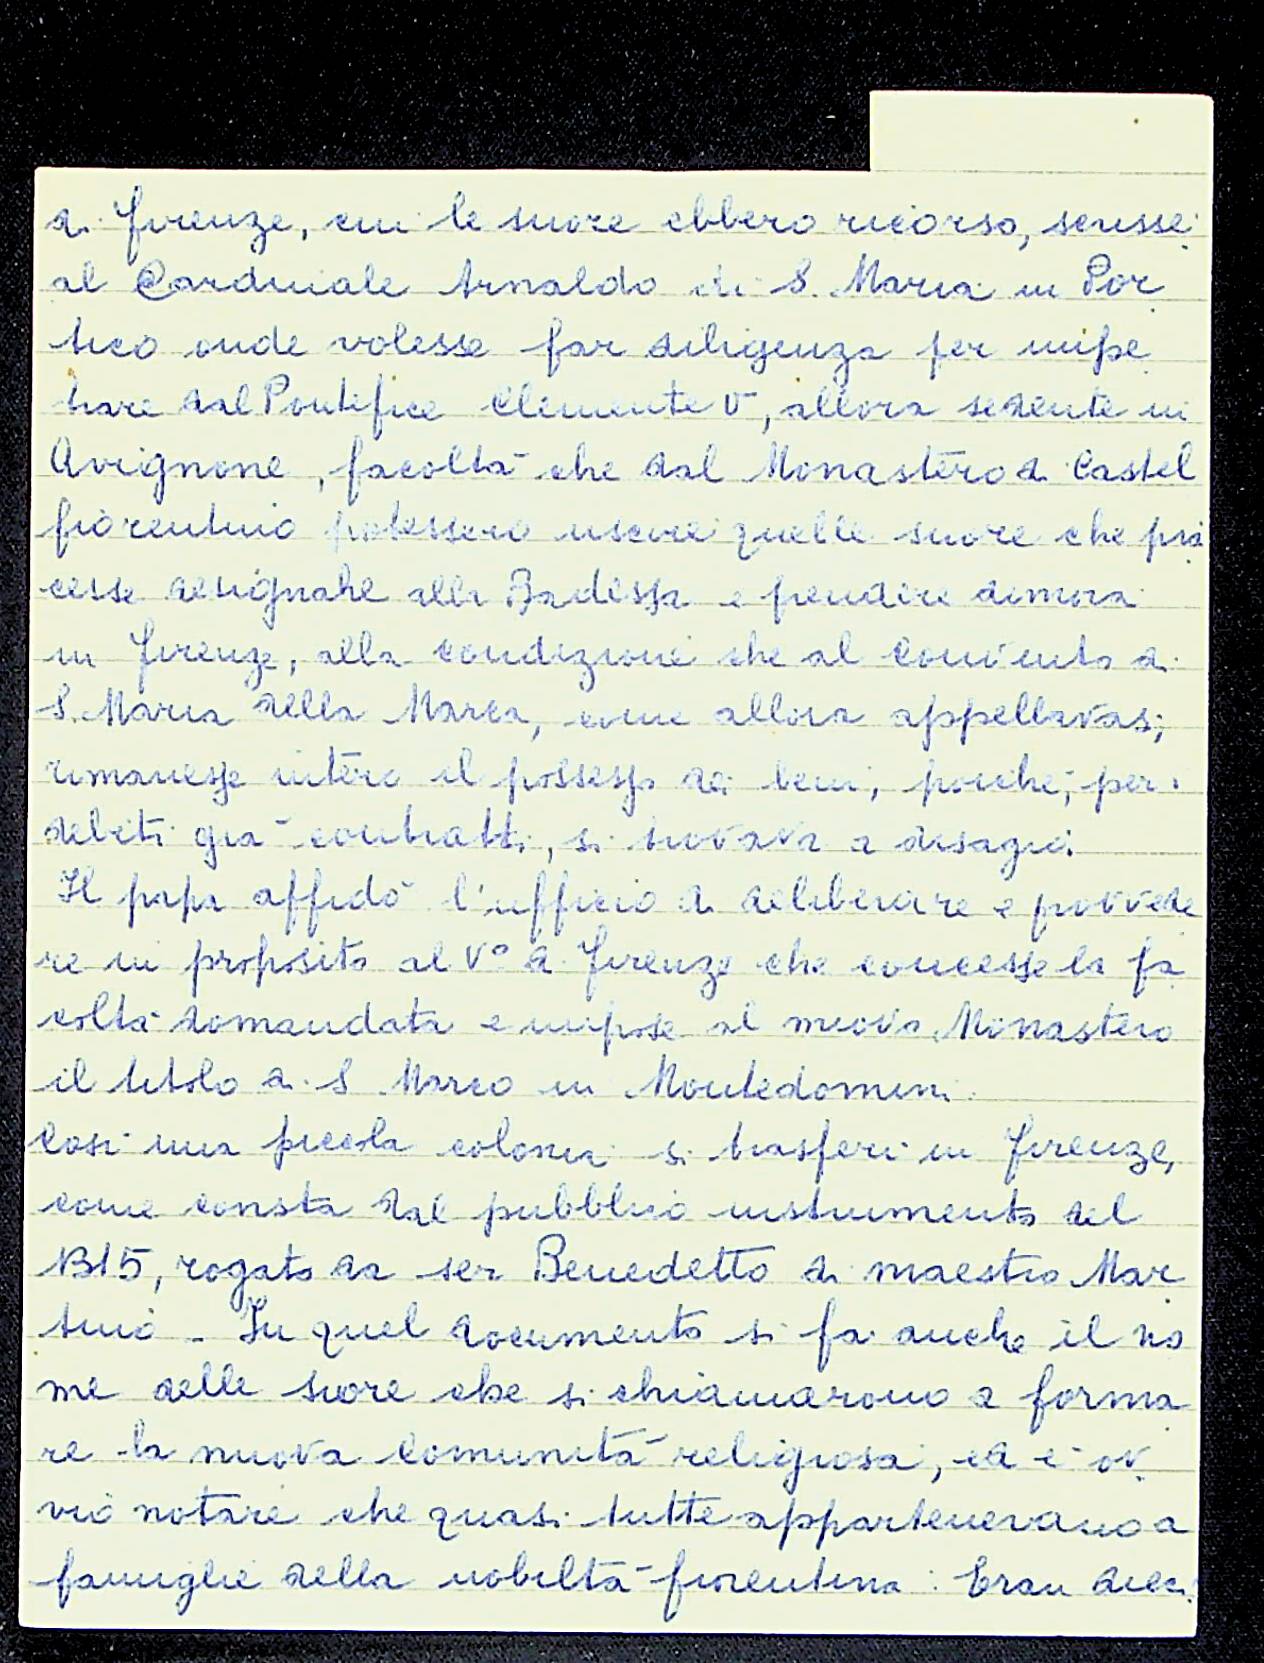 di Firenze, cui le suore ebbero ricorso, scrisse
al Cardinale Arnaldo di S. Maria in Por
tico onde volesse far diligenza per impe
trare dal Pontefice Clemente V, allora sedente in
Avignone, facoltà che dal Monastero di Castel
fiorentino potessero uscire quelle suore che pia
cesse designare alla Badessa e prendere dimora
in Firenze, alla condizione che al Convento di
S. Maria della Marca, come allora appellavasi,
rimanesse intero il possesso dei beni, poiché, per
debiti già contratti, si trovava a disagio.
Il papa affidò l'ufficio di deliberare e provvede
re in proposito al V° di Firenze che concesse la fa
coltà domandata e impose al nuovo Monastero
il titolo di S Marco in Montedomini.
Così una piccola colonia si trasferì in Firenze,
come consta dal pubblico instrumento del
1315, rogato da ser Benedetto di maestro Mar
tino - In quel documento si fa anche il no
me delle suore che si chiamarono a forma
re la nuova comunità religiosa, ed è ov
vio notare che quasi tutte appartenevano a
famiglie della nobiltà fiorentina. Eran dieci